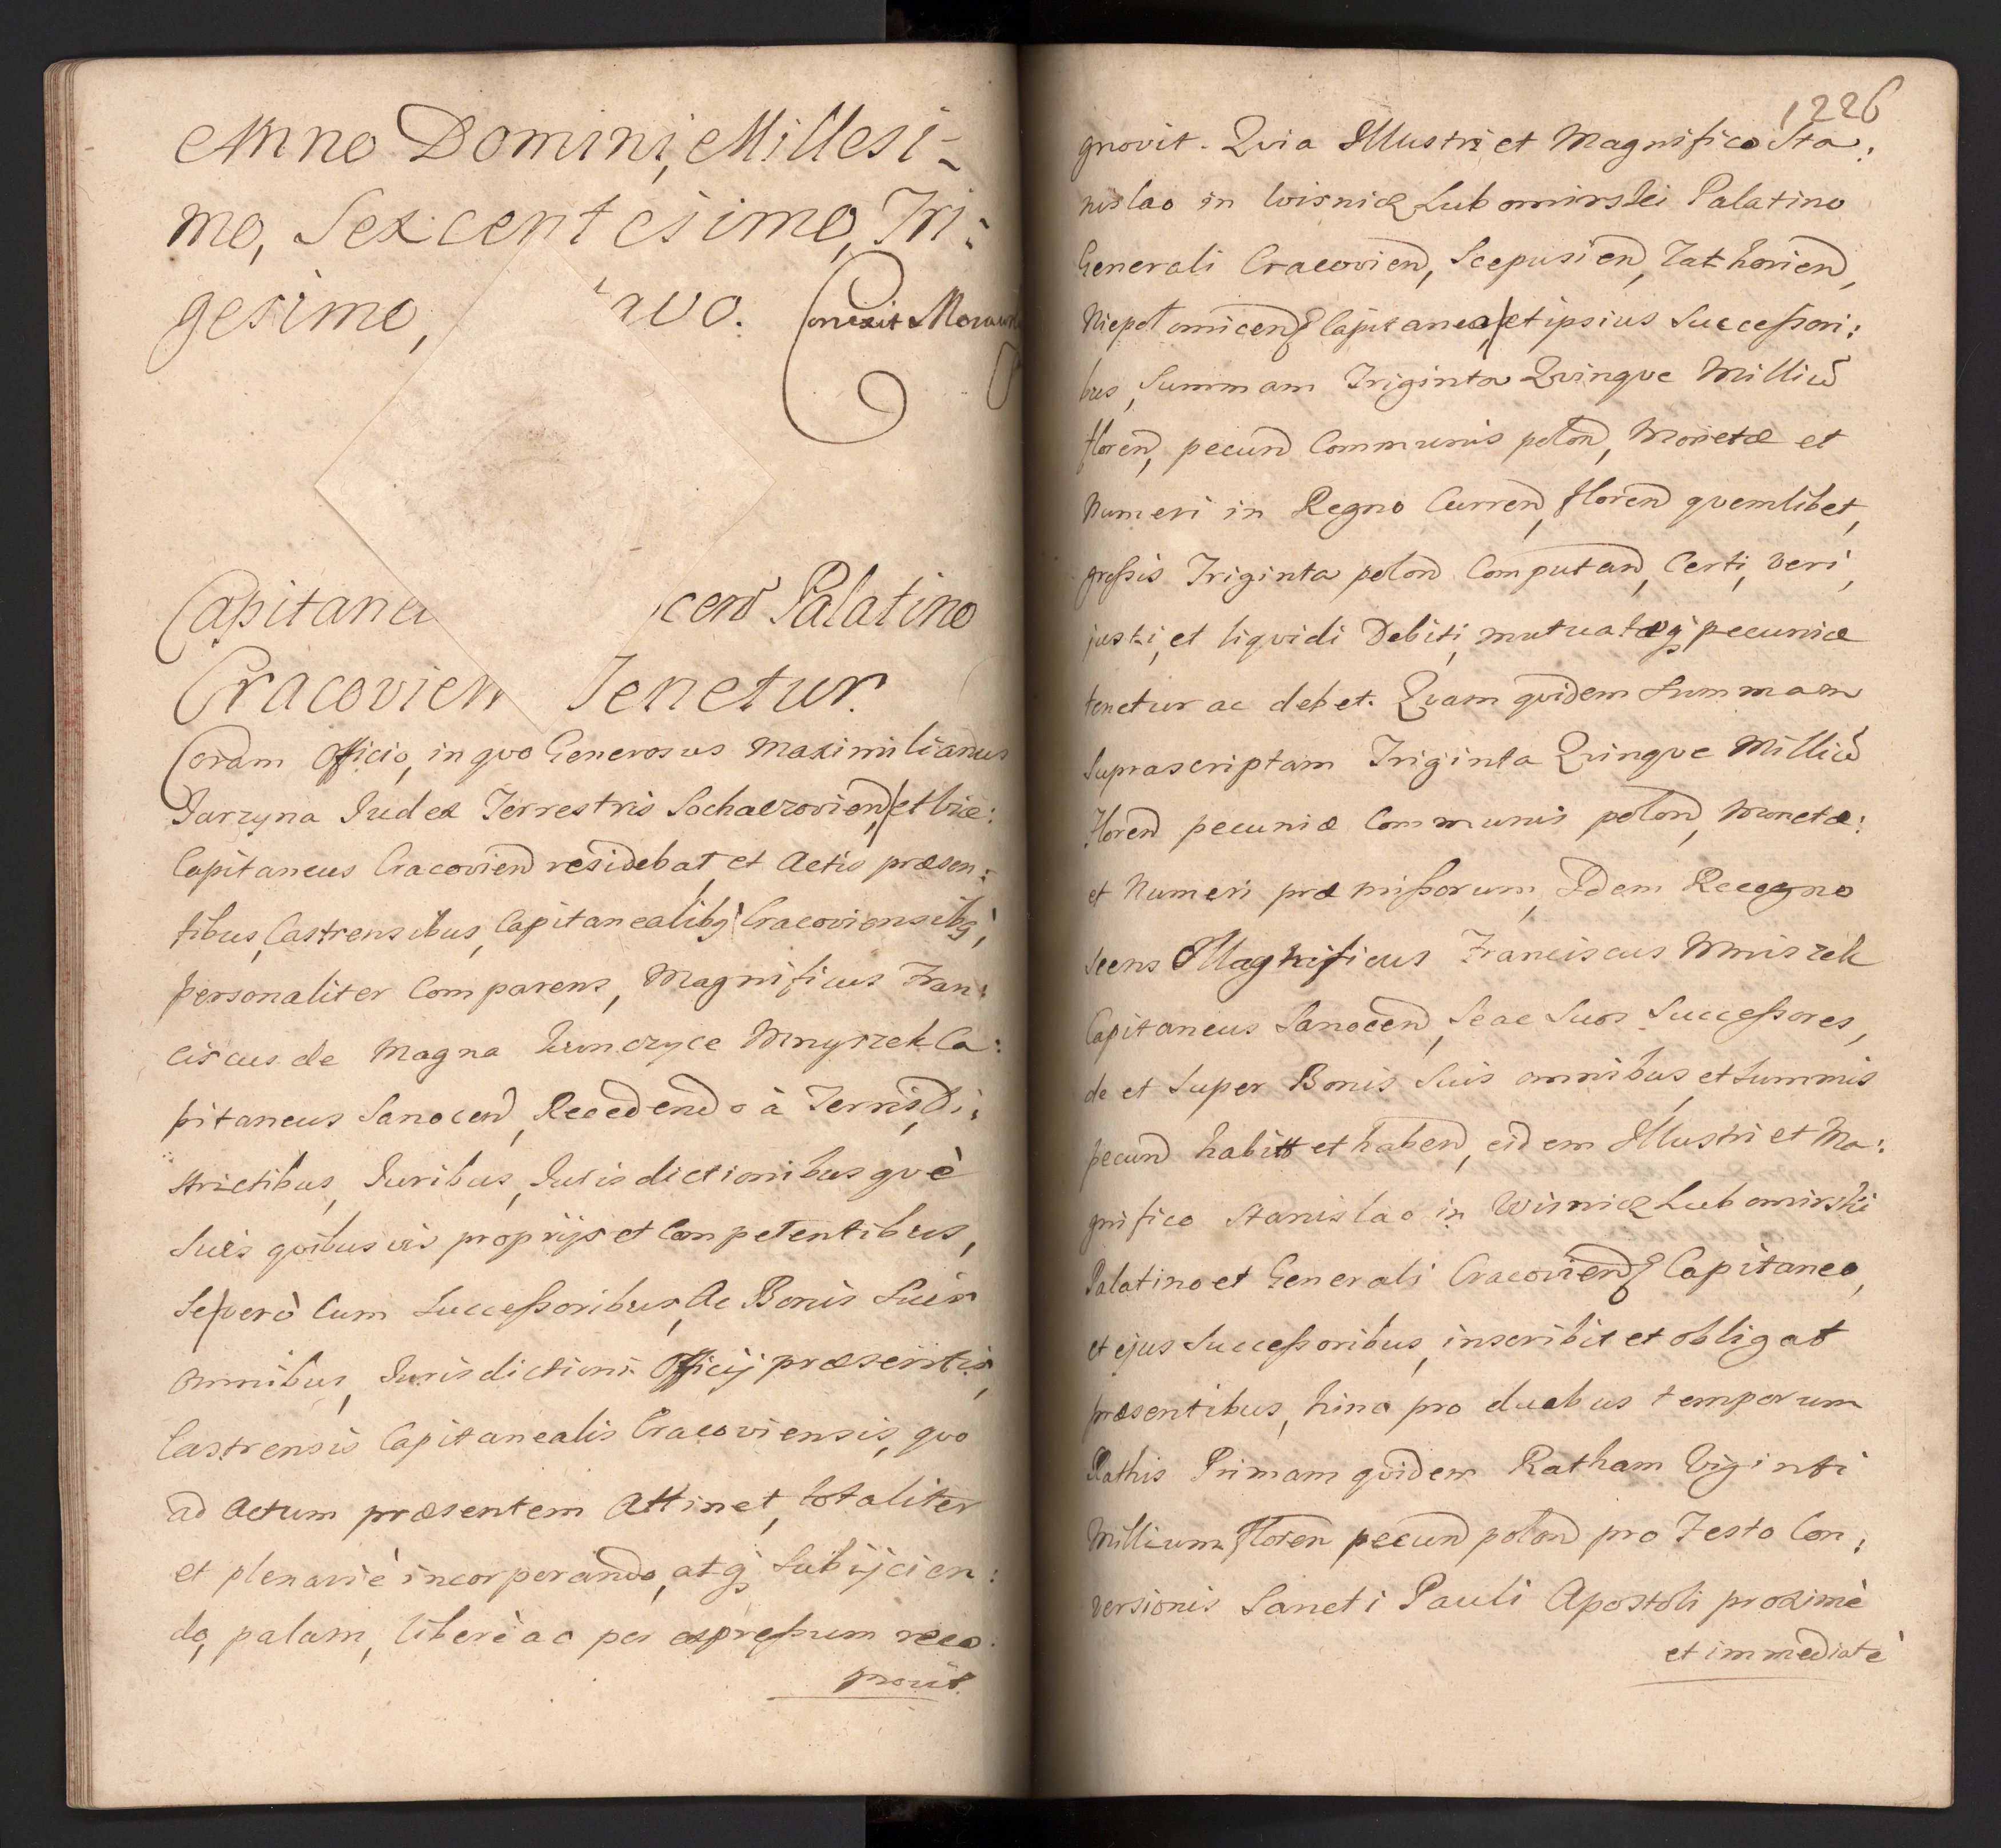 Anno Domini, Millesi-
mo, Sexcentesimo, Tri:
gesimo, avo. Conexit Moraw
Capitaneu cend Palatino
Cracovien Tenetur.
Coram Officio, in quo Generosus Maximilianus
Jarzyna Judex Terrestris Sochaczoviend, et vice:
Capitaneus Cracoviend residebat et Actis præsen:
tibus, Castrensibus, Capitanealibq Cracoviensibq,
personaliter Comparens, Magnificus Fran:
ciscus de Magna Kunczyce Mnyszek Ca:
pitaneus Sanocend, Recedendo à Terris, Di:
strictibus, Juribus, Jurisdictionibusquè
Suis quibusvis proprijs et Competentibus,
Se verò Cum Successoribus, Ac Bonis Suis
omnibus, Jurisdictioni Officij præsentis,
Castrensis Capitanealis Cracoviensis, quo
ad Actum præsentem Attinet, totaliter
et plenariè incorporando, atq Subijcien:
do, palam, liberè ac per expressum reco:
gnovit.
1226
gnovit. Quia Illustri et Magnifico Sta:
nislao in Wisnicz Lubomirski Palatino
Generali Cracoviend, Scepusiend, Zathoriend,
Niepolomicend Capitaneo, et ipsius Successori:
bus, Summam Triginta Quinque Milliu
florend, pecund Communis polond, Monetæ et
Numeri in Regno Currend, florend quemlibet,
grossis Triginta polond Computand, Certi, veri,
justi, et liquidi Debiti, mutuatæq pecuniæ
tenetur ac debet. Quam quidem Summam
Suprascriptam Triginta Quinque Milliu
Florend pecuniæ Communis polond, Monetæ:
et Numeri præmissorum, Idem Recogno
scens Magnificus Franciscus Mniszek
Capitaneus Sanocend, Se ac Suos Successores,
de et Super Bonis Suis omnibus, et Summis
pecund habitt et habend, eidem Illustri et Ma:
gnifico Stanislao in Wisnicz Lubomirski
Palatino et Generali Cracoviend Capitaneo,
et ejus Successoribus, inscribit et obligat
præsentibus, hinc pro duabus temporum
Rathis Primam quidem Ratham Viginti
Millium floren pecund polond pro Festo Con:
versionis Sancti Pauli Apostoli proximè
et immediatè